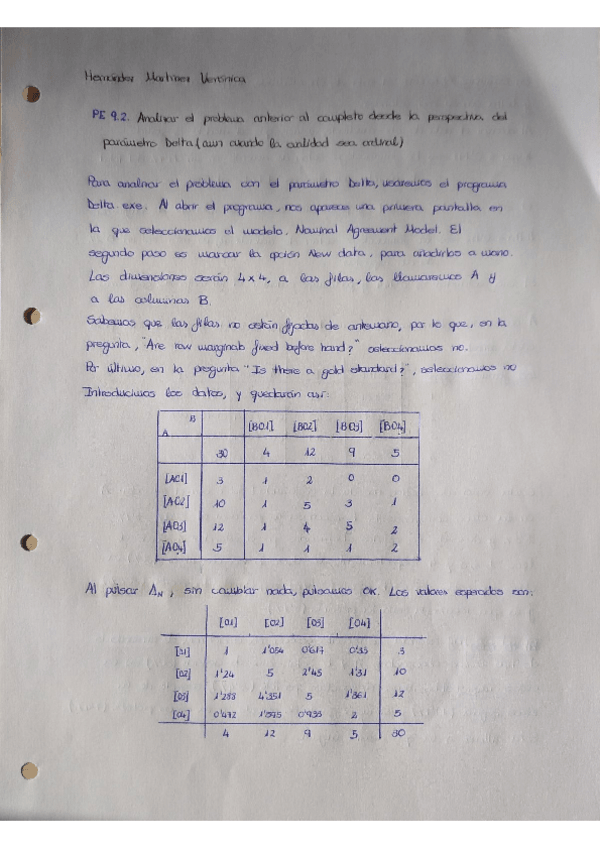 Hernández Martínez Verónica
PE 9.2. Analizar el problema anterior al completo desde la perspectiva del
parámetro Delta (aun cuando la cantidad sea ordinal)
Para analizar el problema con el parámetro Delta, usaremos el programa
Delta.exe. Al abrir el programa, nos aparece una primera pantalla en
la que seleccionamos el modelo. Nominal Agreement Model. El
segundo paso es marcar la opción New data, para añadirlos a mano.
Las dimensiones serán 4x4, a las filas, las llamaremos A y
a las columnas B.
Sabemos que las filas no están fijadas de antemano, por lo que, en la
pregunta, "Are row marginals fixed before hand?" seleccionamos no.
Por último, en la pregunta "Is there a gold standard?", seleccionamos no
Introducimos los datos, y quedarían así:
B
A [B01] [B02] [B03] [B04]
30 4 12 9 5
[A01] 3 1 2 0 0
[A02] 10 1 5 3 1
[A03] 12 1 4 5 2
[A04] 5 1 1 1 2
Al pulsar ΔN, sin cambiar nada, pulsamos OK. Los valores esperados son:
[01] [02] [03] [04]
[01] 1 1'054 0'617 0'33 3
[02] 1'24 5 2'45 1'31 10
[03] 1'288 4'351 5 1'361 12
[04] 0'472 1'595 0'933 2 5
4 12 9 5 30